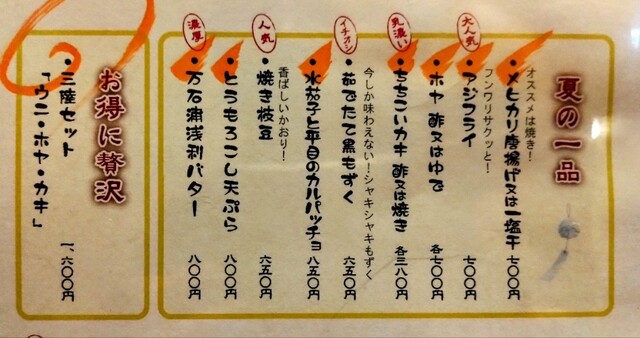 夏の一品
オススメは焼き!
・メヒカリ唐揚げ又は一塩干 七〇〇円
フンワリサクッと!
大人気
・アジフライ 七〇〇円
・ホヤ 酢又はゆで 各七〇〇円
乳濃い
・ちちこいカキ 酢又は焼き 各三八〇円
今しか味わえない!シャキシャキもずく
イチオシ
・茹でたて黒もずく 六五〇円
・水茄子と平目のカルパッチョ 八五〇円
香ばしいかおり!
人気
・焼き枝豆 六五〇円
・とうもろこし天ぷら 八〇〇円
濃厚
・万石浦浅利バター 八〇〇円
お得に贅沢
・三陸セット
「ウニ・ホヤ・カキ」 一、六〇〇円